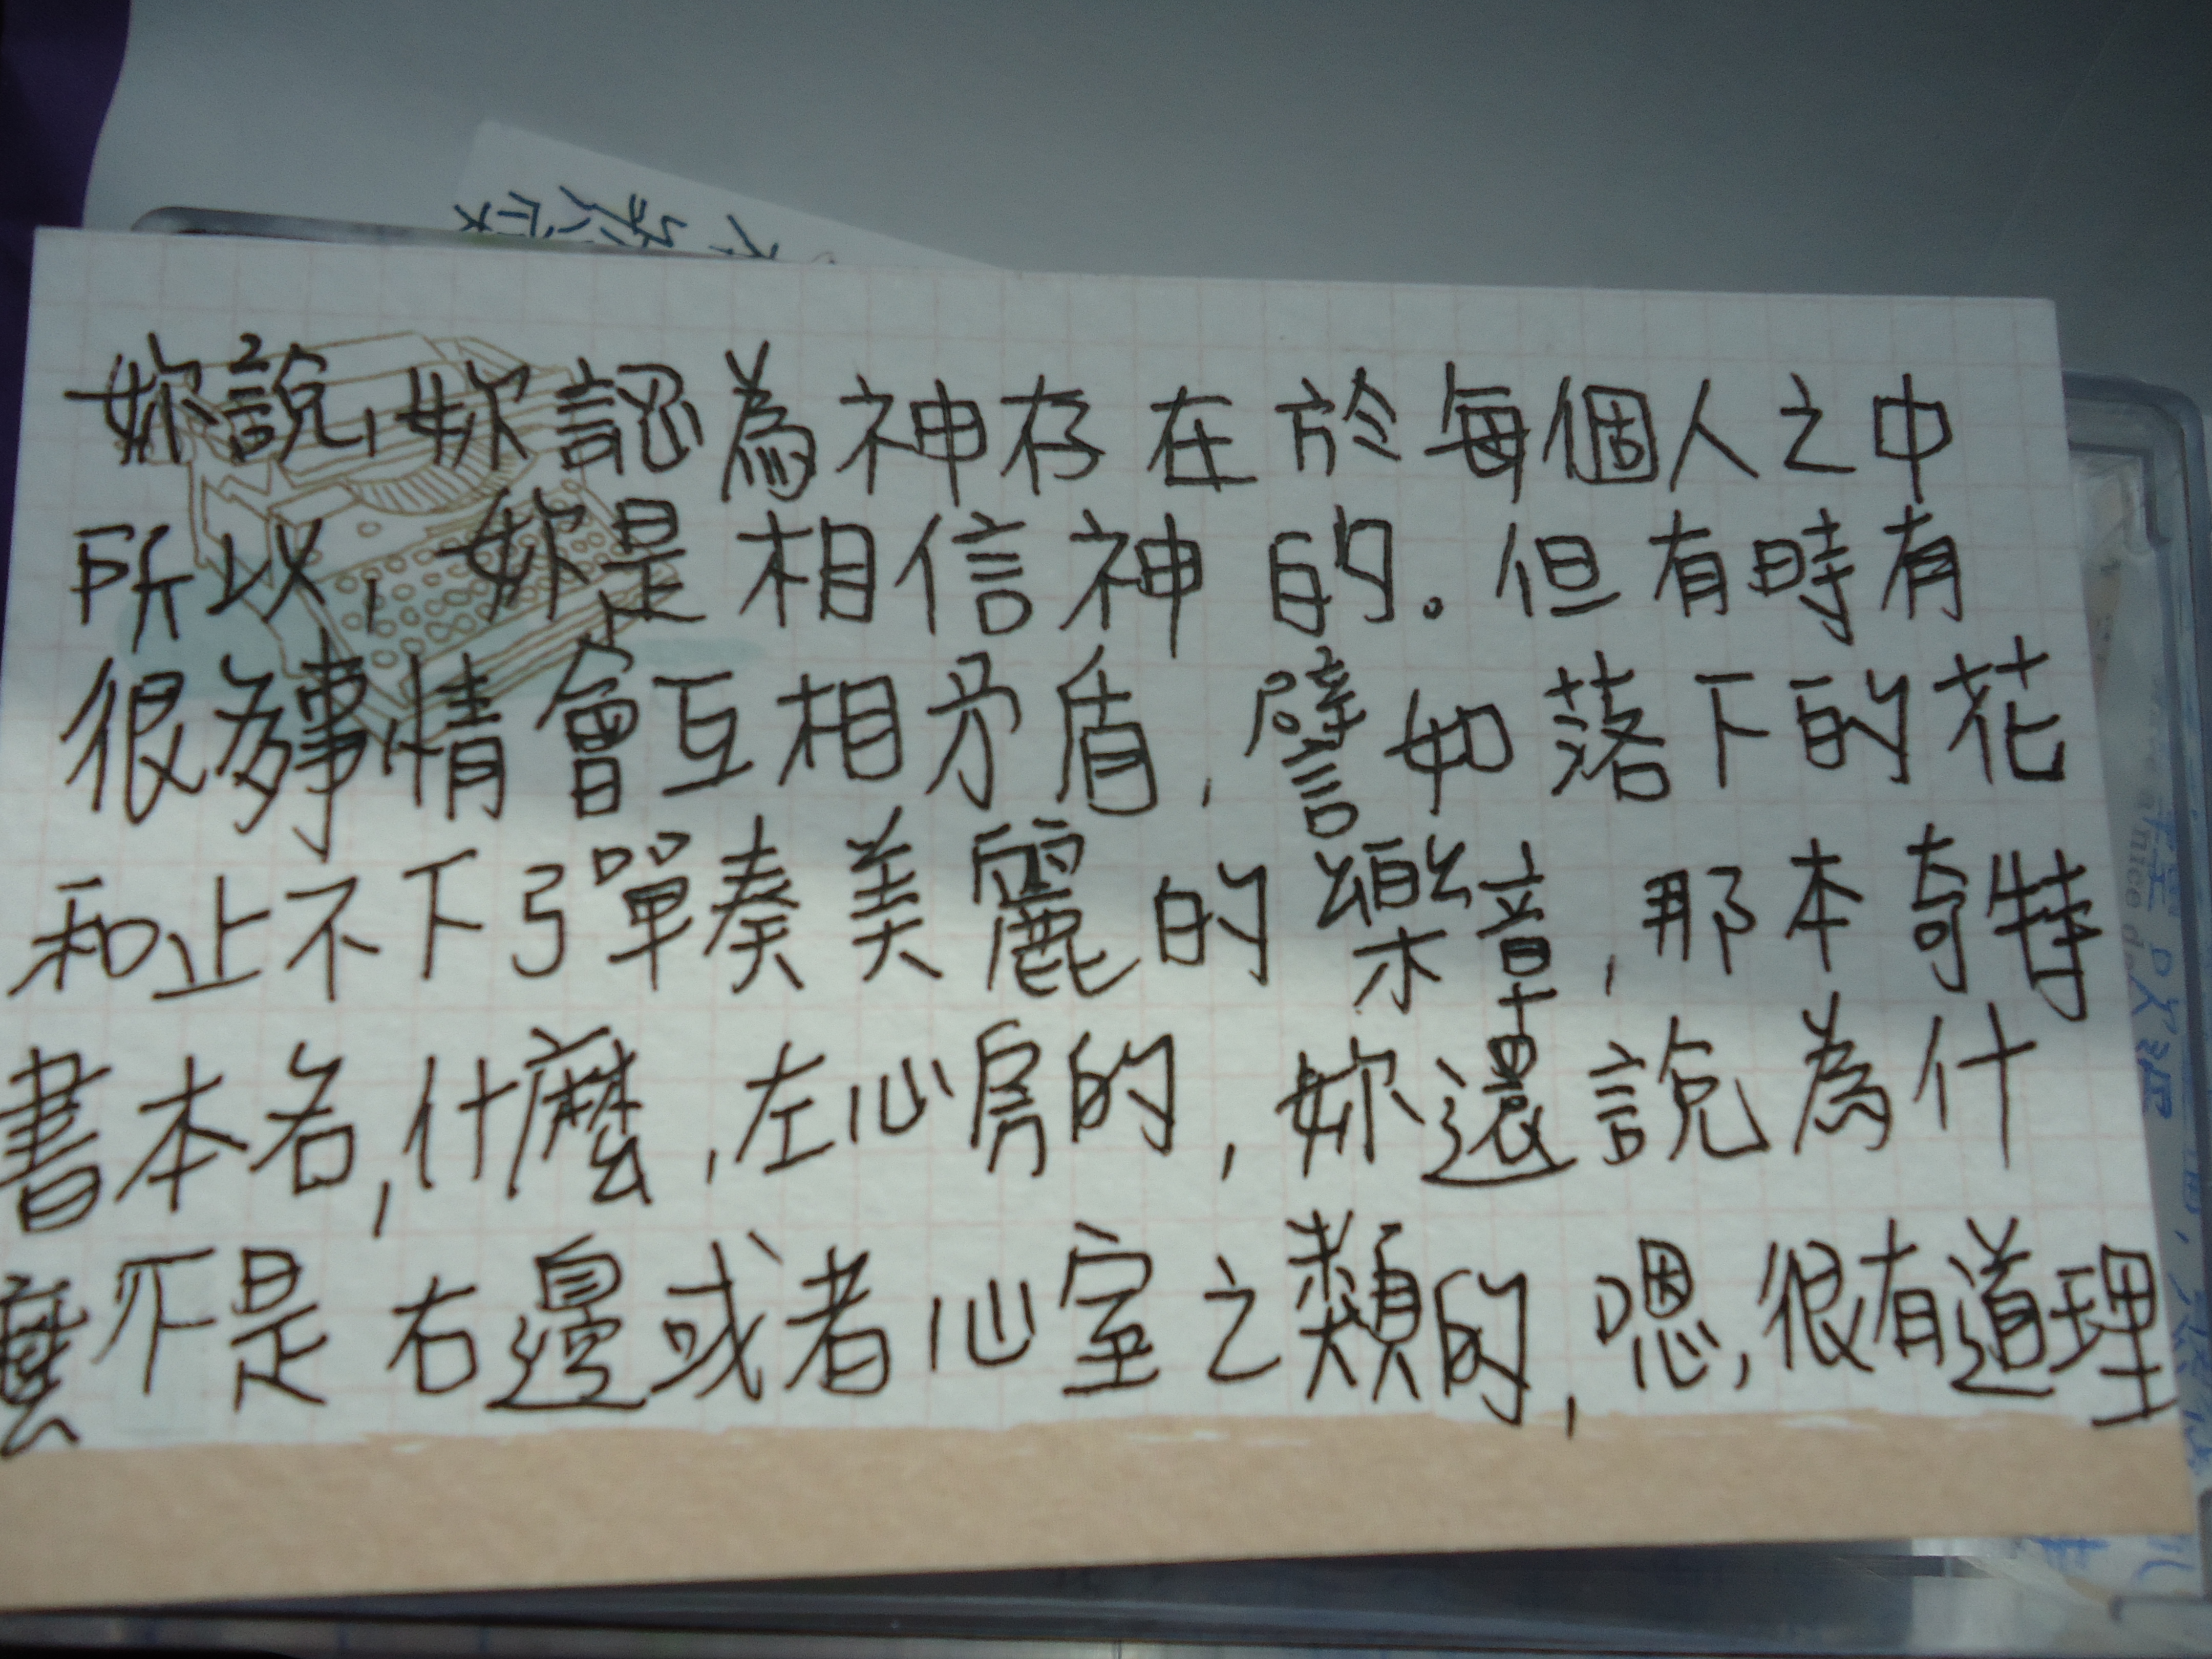 妳說,妳認為神存在於每個人之中
所以,妳是相信神的。但有時有
很多事情會互相矛盾,譬如落下的花
和止不下彈奏美麗的樂章,那本奇特
書本名,什麼,左心房的,妳還說為什
麼不是右邊或者心室之類的,嗯,很有道理